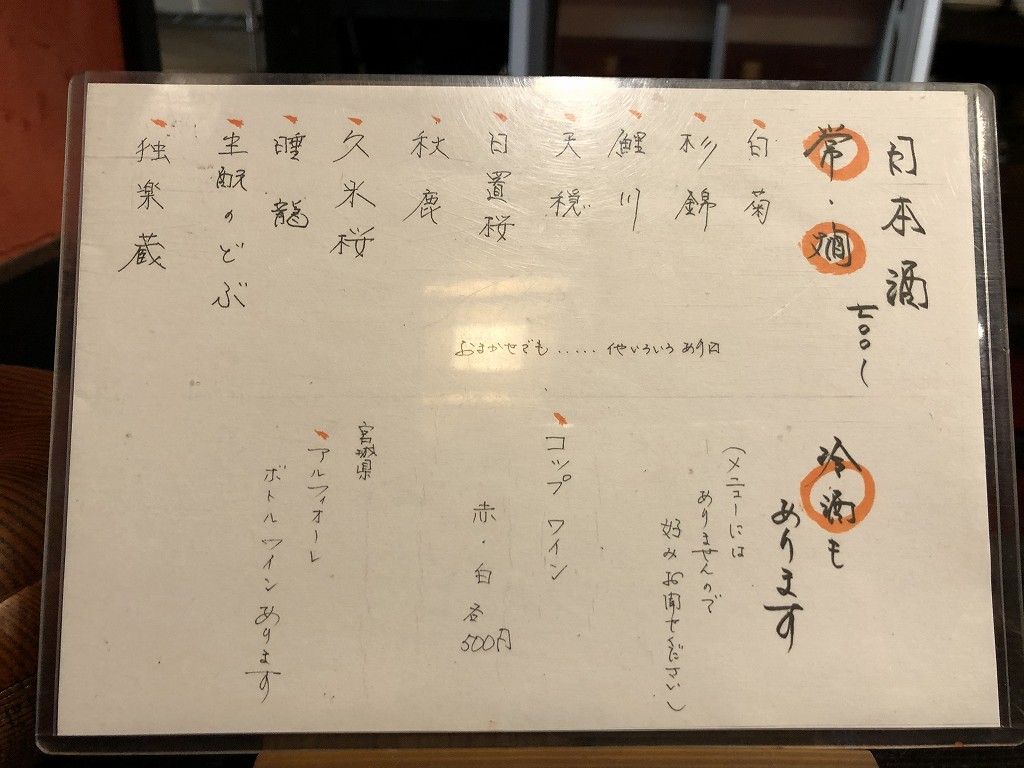 日本酒
常・燗 七〇〇〜
白菊
杉錦
鯉川
天穏
日置桜
秋鹿
久米桜
睡龍
生酛のどぶ
独楽蔵
おまかせでも.....他いろいろあり〼
冷酒も
あります
(メニューには
ありませんので
好みお聞せください)
コップワイン
赤・白 各
500円
宮城県
アルフィオーレ
ボトルワインあります